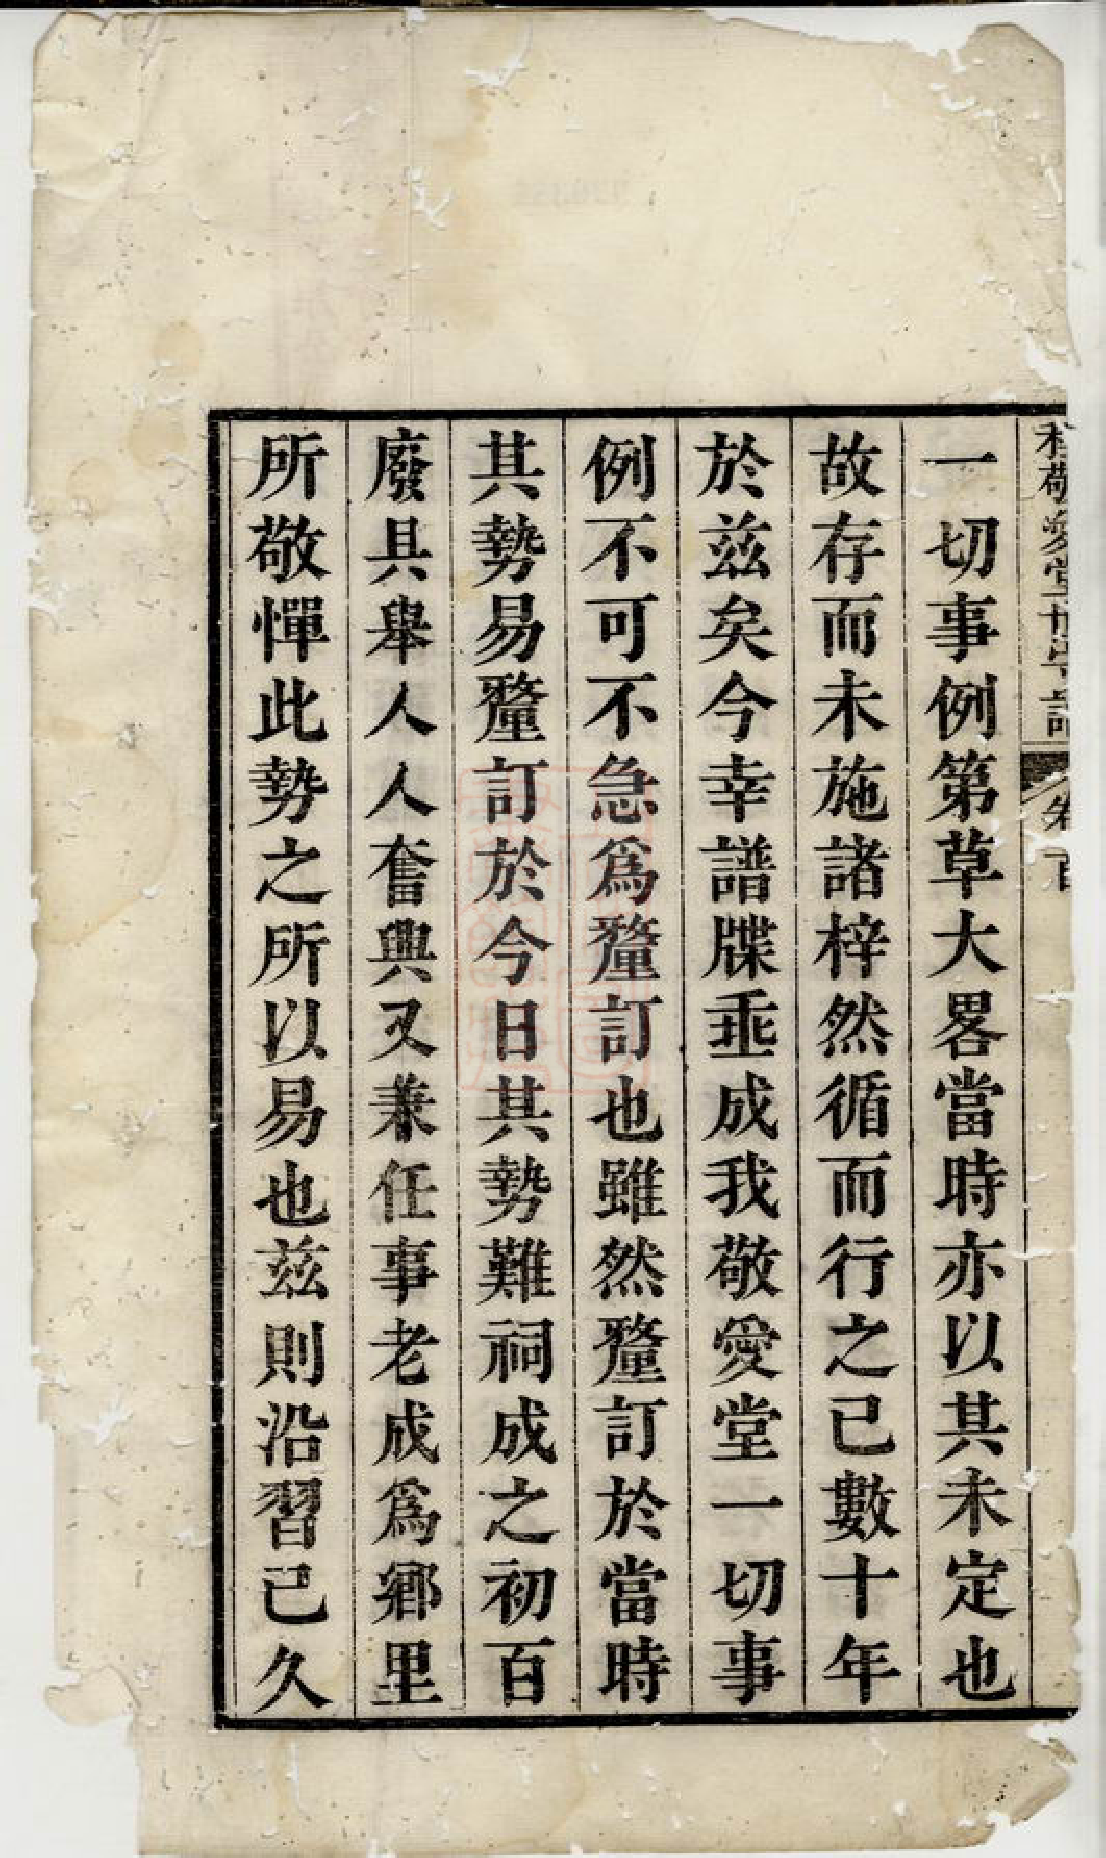 程敬愛堂世守記 卷首
一切事例第草大畧當時亦以其未定也
故存而未施諸梓然循而行之已數十年
於茲矣今幸譜牒垂成我敬愛堂一切事
例不可不急為釐訂也雖然釐訂於當時
其勢易釐訂於今日其勢難祠成之初百
廢具舉人人奮興又兼任事老成為鄉里
所敬憚此勢之所以易也茲則沿習已久